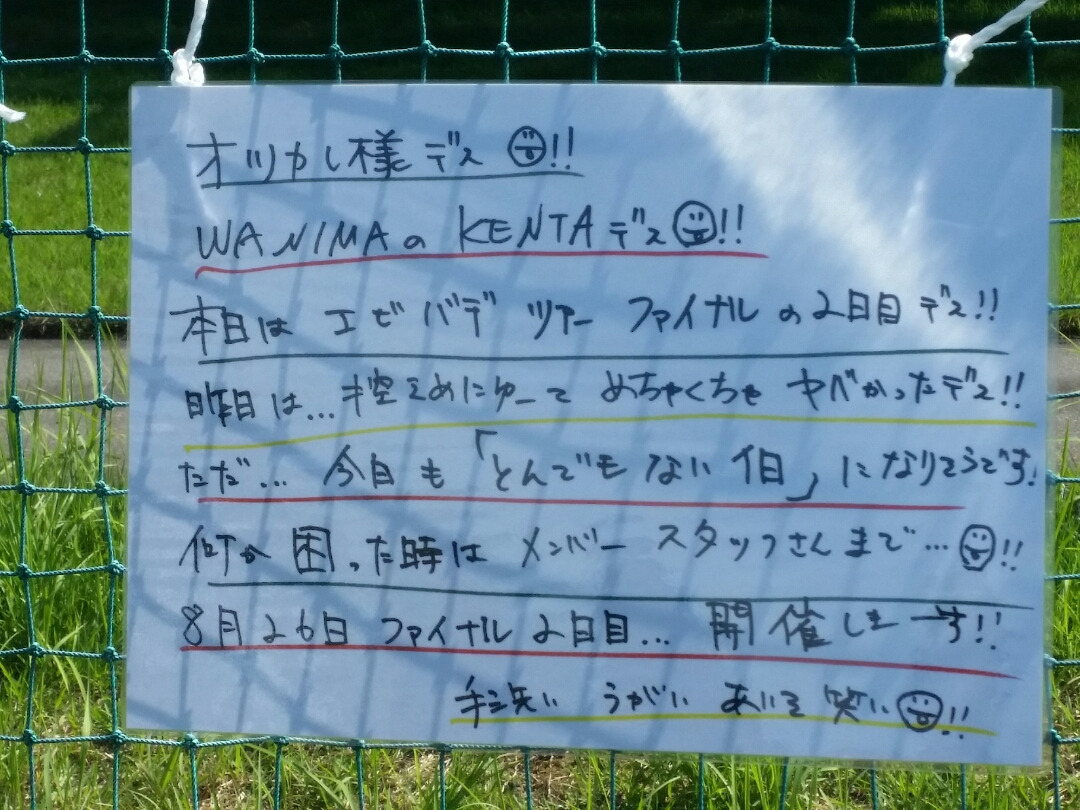 オツカレ様デス!!
WANIMAの KENTAデス!!
本日は エビバデ ツアー ファイナルの2日目デス!!
昨日は...控えめにゆーて めちゃくちゃ ヤベかったデス!!
ただ... 今日も「とんでもない1日」になりそうです!
何か困った時は メンバー スタッフさんまで...!!
8月26日 ファイナル2日目... 開催しまーす!!
手洗い うがい あいる 笑い!!